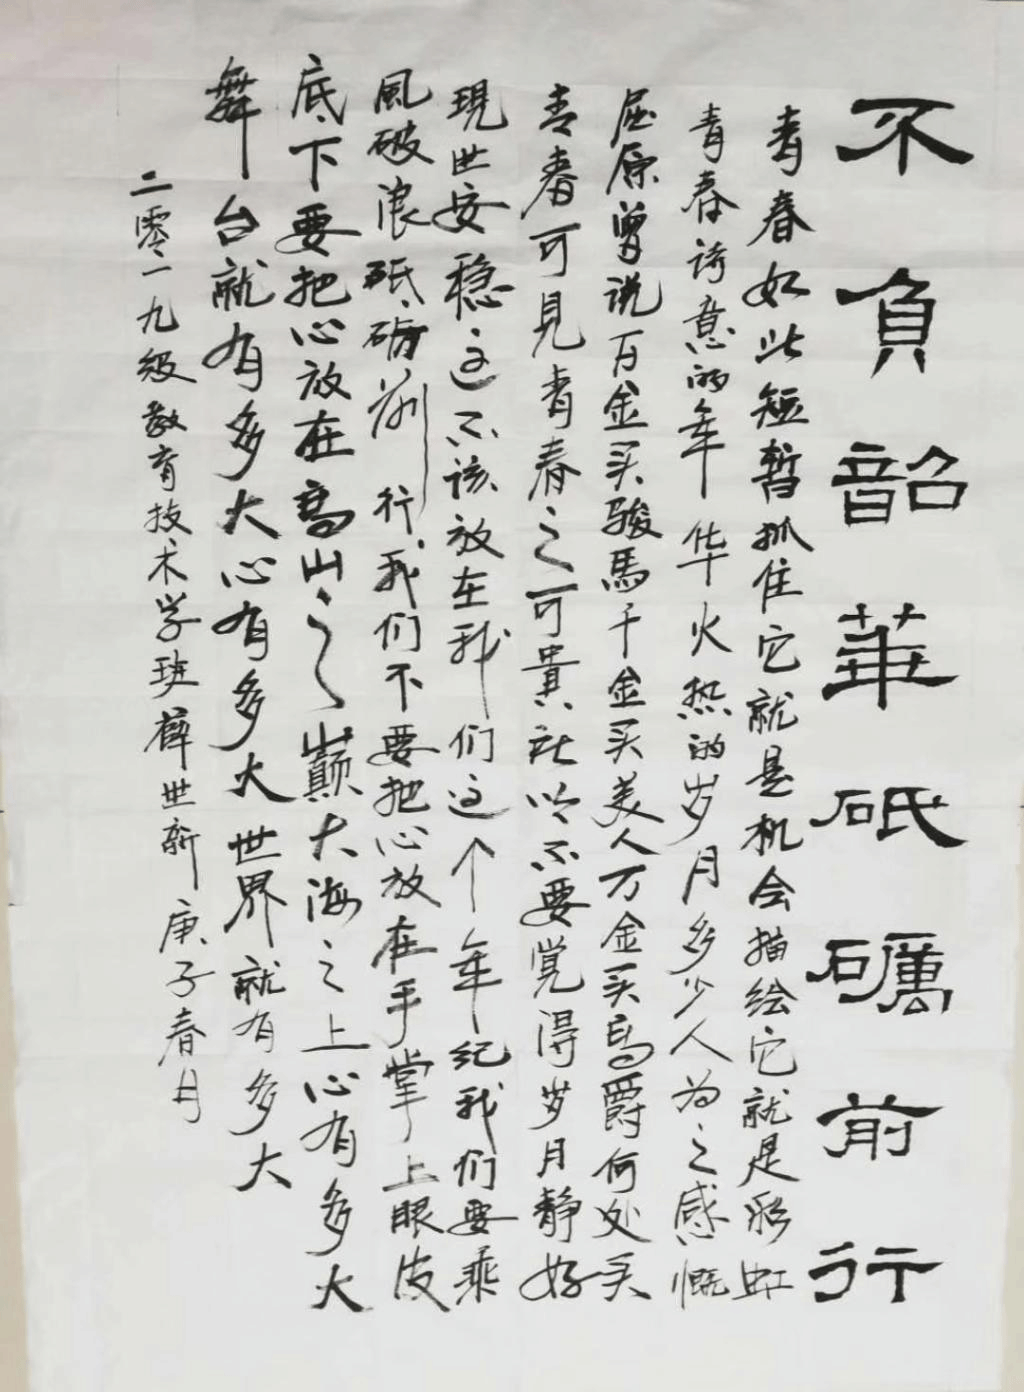 不負韶華砥礪前行
青春如此短暂抓住它就是机会描绘它就是彩虹
青春诗意的年华火热的岁月多少人为之感慨
屈原曾说百金买骏馬千金买美人万金买高爵何处买
青春可見青春之可貴所以不要覚得岁月静好
現世安稳这不该放在我们这个年纪我们要乘
風破浪砥砺前行我们不要把心放在手掌上眼皮
底下要把心放在高山之巅大海之上心有多大
舞台就有多大心有多大世界就有多大
二零一九级教育技术学班薛世新庚子春月